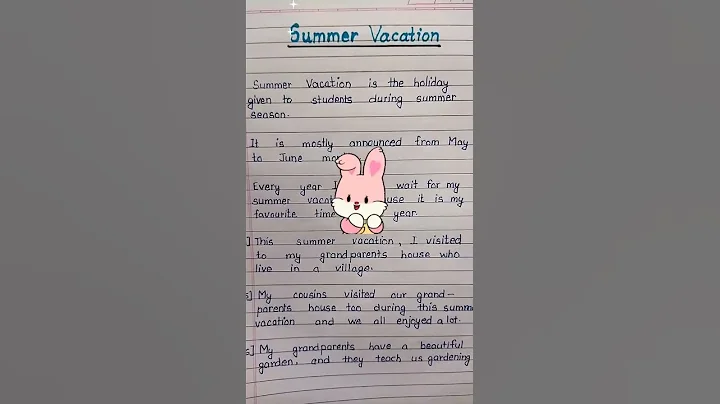 Summer Vacation
Summer Vacation is the holiday
given to students during summer
season.
It is mostly announced from May
to June
Every year I wait for my
summer it is my
favourite time year.
] This summer vacation, I visited
to my grandparents house who
live in a village.
] My cousins visited our grand-
parents house too during this summ
vacation and we all enjoyed a lot.
] My grandparents have a beautiful
garden, and they teach us gardening